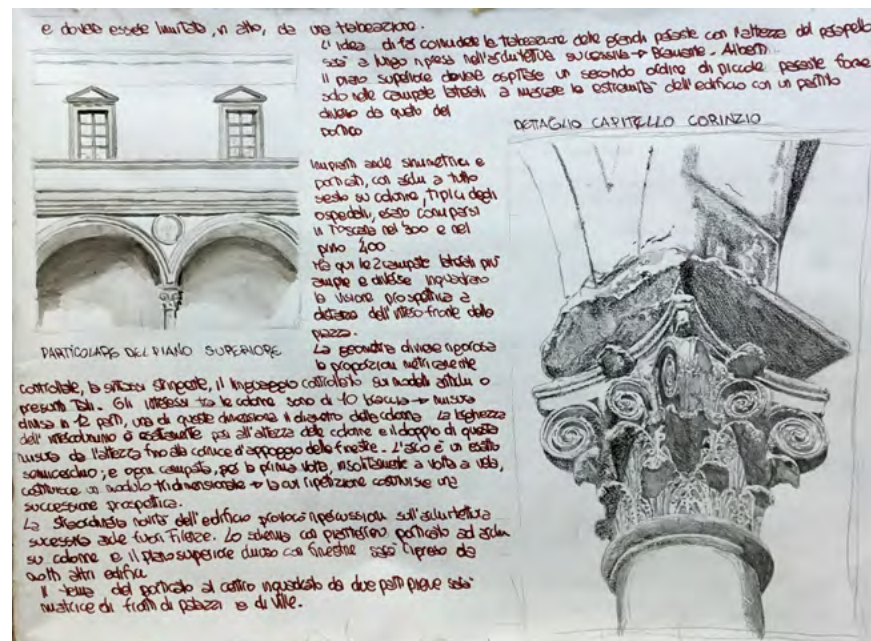 e doveva essere limitato, in alto, da una trabeazione.
L'idea di far coincidere la trabeazione delle grandi paraste con l'altezza del parapetto
sarà a lungo ripresa nell'architettura successiva → Bramante - Alberti...
Il piano superiore doveva ospitare un secondo ordine di piccole paraste forse
solo nelle campate laterali a marcare le estremità dell'edificio con un partito
diverso da quello del
portico
Impianti anche simmetrici e
porticati, con archi a tutto
sesto su colonne, tipici degli
ospedali, erano comparsi
in Toscana nel '300 e nel
primo '400.
Ma qui le 2 campate laterali più
ampie e diverse inquadrano
la visione prospettica a
distanza dell'intero fronte della
piazza.
La geometria diviene rigorosa
le proporzioni metricamente
controllate, la sintassi stringente, il linguaggio controllato sui modelli antichi o
presunti tali. Gli interassi tra le colonne sono di 10 braccia → misura
divisa in 12 parti, una di queste dimensiona il diametro delle colonne. La larghezza
dell'intercolumnio è esattamente pari all'altezza delle colonne e il doppio di questa
misura dà l'altezza fino alla cornice d'appoggio delle finestre. L'arco è un esatto
semicerchio; e ogni campata, per la prima volta, insolitamente a volta a vela,
costituisce un modulo tridimensionale → la cui ripetizione costruisce una
successione prospettica.
La straordinaria novità dell'edificio provocò ripercussioni sull'architettura
sucessiva anche fuori Firenze. Lo schema con pianterreno porticato ad archi
su colonne e il piano superiore chiuso con finestre sarà ripreso da
molti altri edifici
Il tema del porticato al centro inquadrato da due parti piene sarà
matrice di fronti di palazzi e di ville.
PARTICOLARE DEL PIANO SUPERIORE
DETTAGLIO CAPITELLO CORINZIO